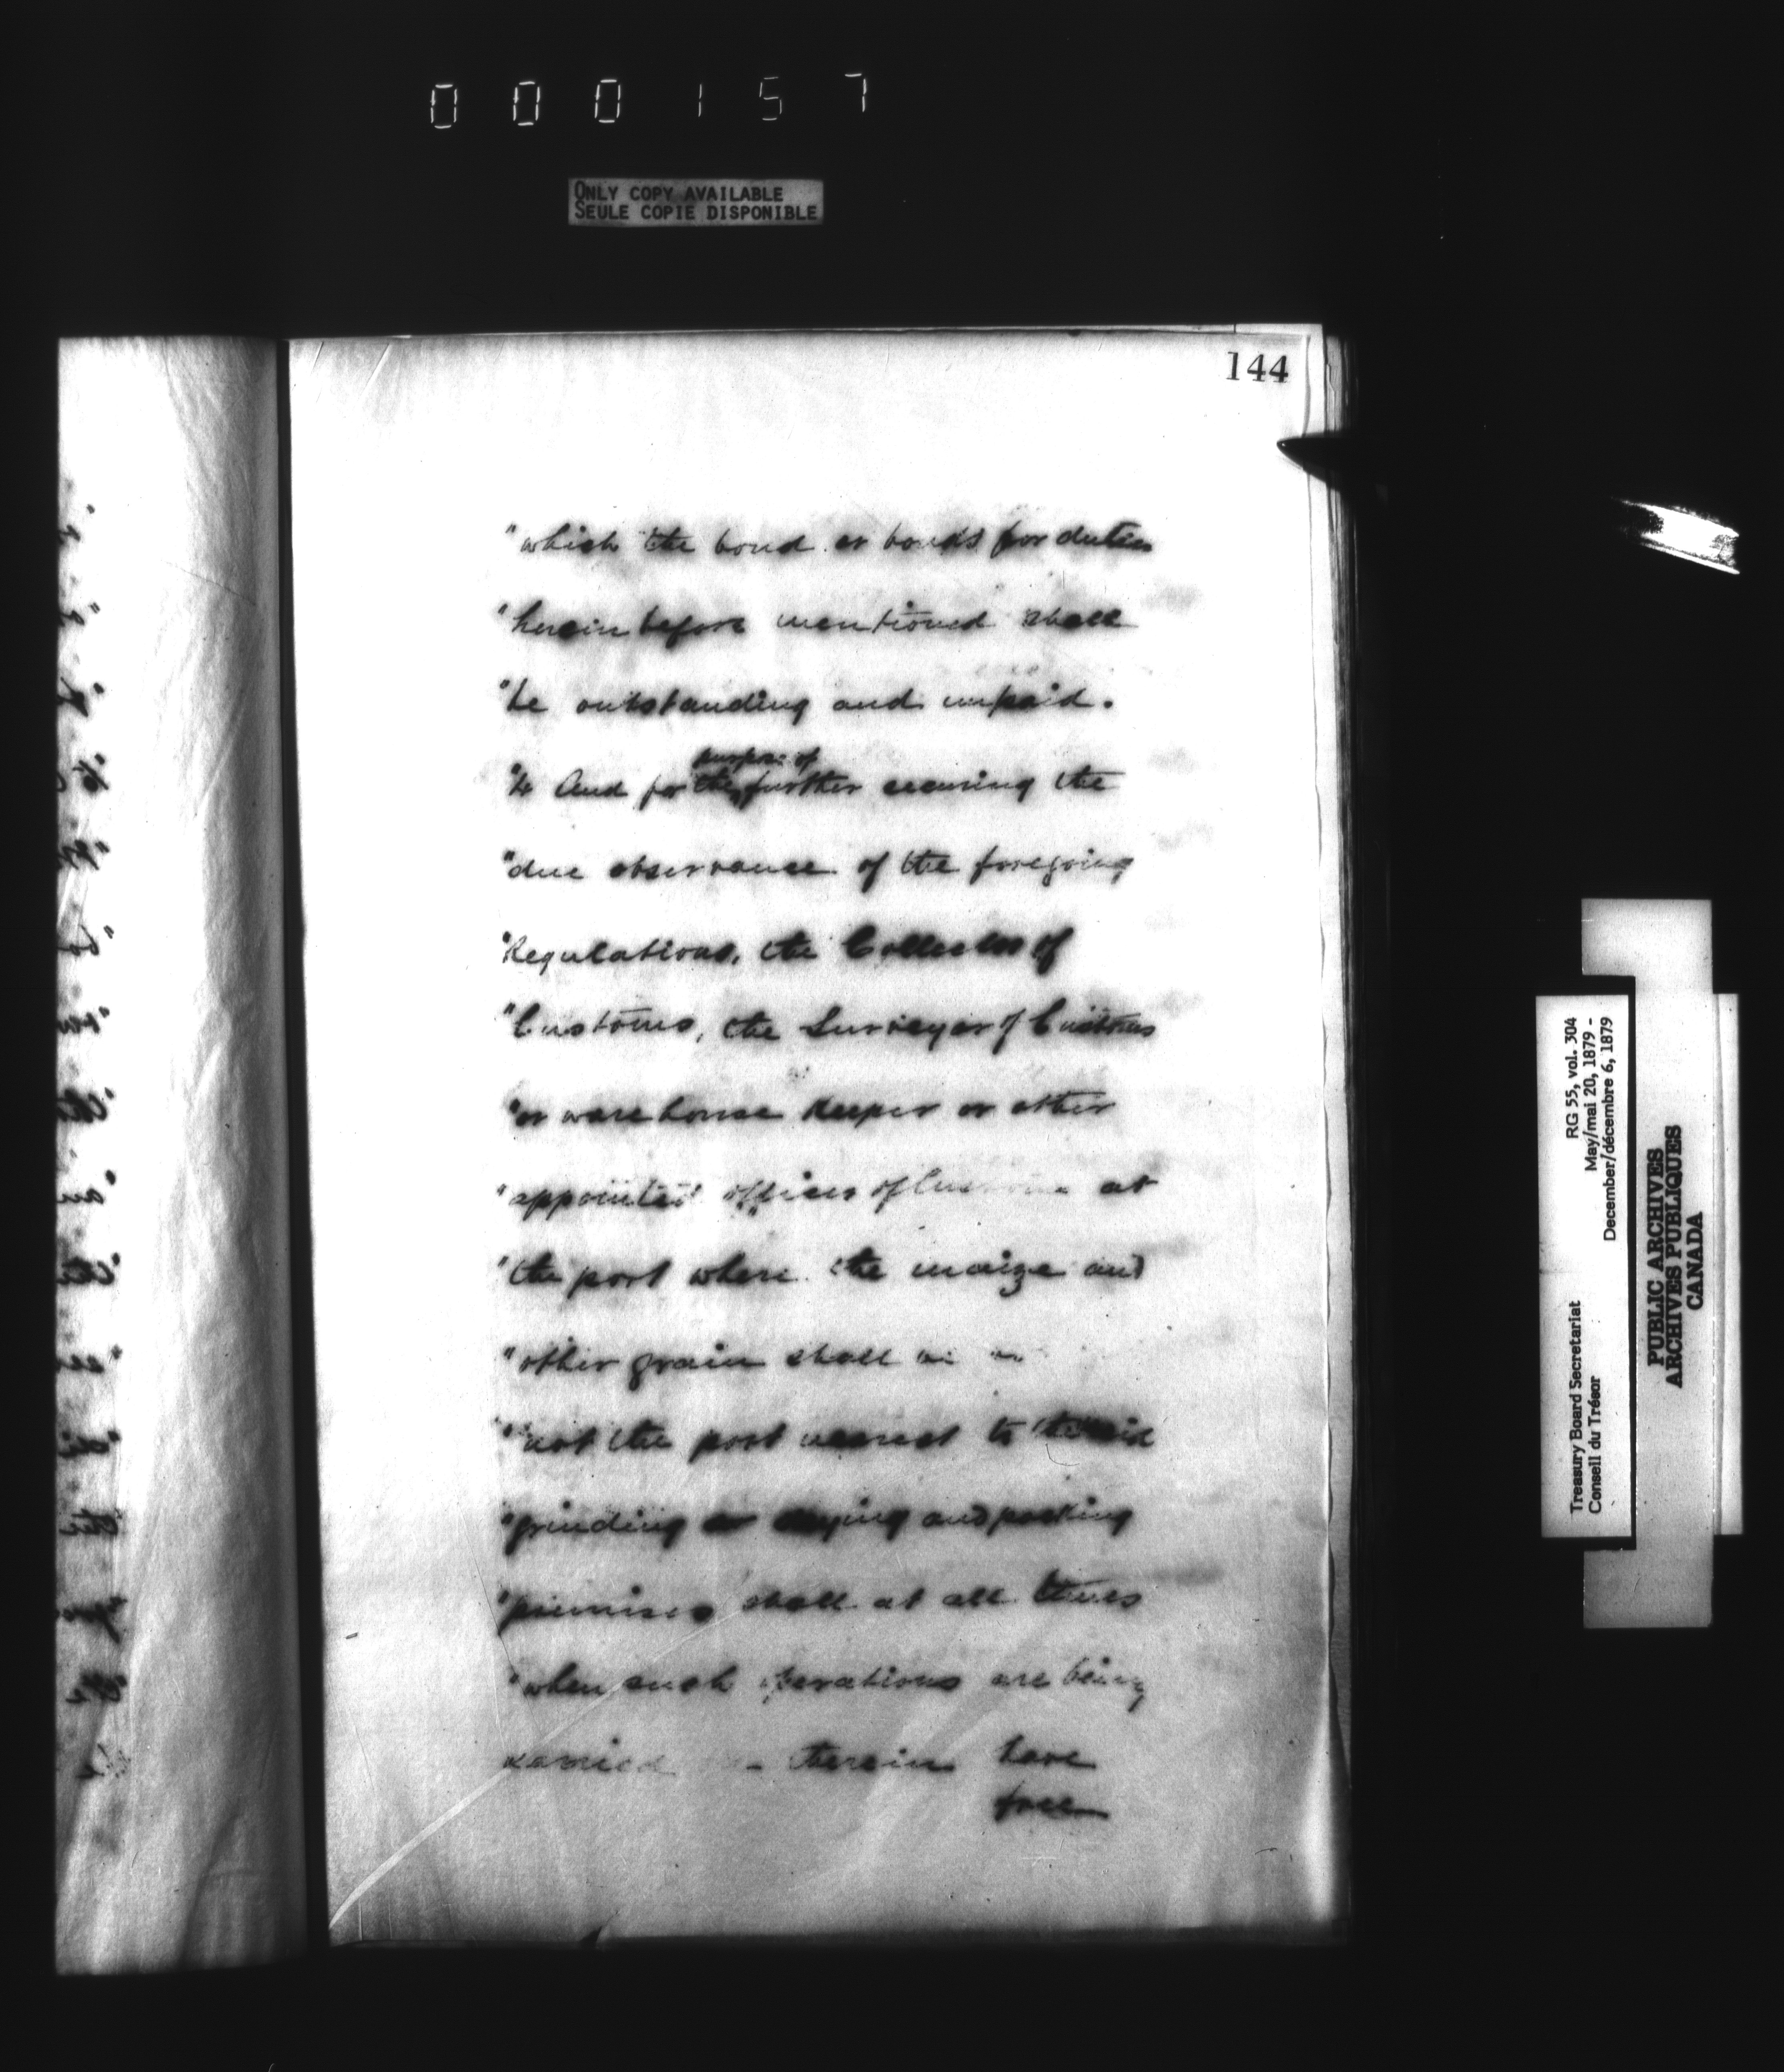 000157
ONLY COPY AVAILABLE
SEULE COPIE DISPONIBLE
144
"which the bond or bonds for duties
"herein before mentioned shall
"be outstanding and unpaid.
purpose of
"And for the further securing the
"due observance of the foregoing
"Regulations, the Collector of
"Customs, the Surveyor of Customs
"or warehouse keeper or other
"appointed officer of Customs at
"the port where the maize and
"other grain shall
"not the port nearest to
"grinding or drying and packing
"premises shall at all times
"when such operations are being
carried therein have
free
RG 55, vol. 304
May/mai 20, 1879 -
December/décembre 6, 1879
Treasury Board Secretariat
Conseil du Trésor
PUBLIC ARCHIVES
ARCHIVES PUBLIQUES
CANADA